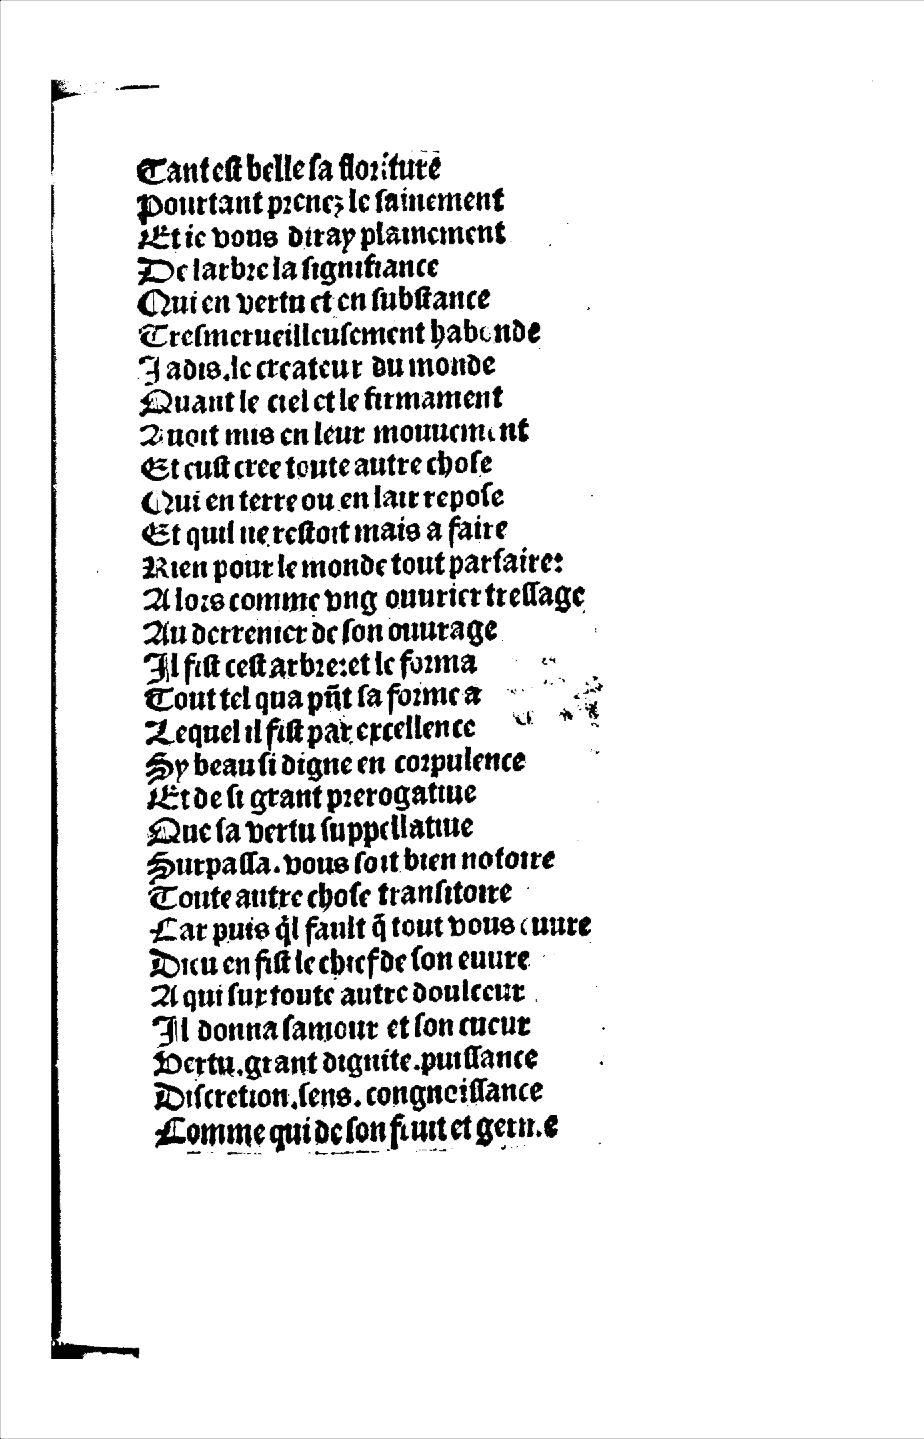 Tant est belle sa floriture
Pourtant prenez le sainement
Et ie vous diray plainement
De larbre la signifiance
Qui en vertu et en substance
Tresmerueilleusement habonde
Jadis.le createur du monde
Quant le ciel et le firmament
Auoit mis en leur mouuement
Et eust cree toute autre chose
Qui en terre ou en lair repose
Et quil ne restoit mais a faire
Rien pour le monde tout parfaire:
Alors comme vng ouurier tressage
Au derrenier de son ouurage
Il fist cest arbre:et le forma
Tout tel qua pñt sa forme a
Lequel il fist par excellence
Sy beau si digne en corpulence
Et de si grant prerogatiue
Que sa vertu suppellatiue
Surpassa.vous soit bien notoire
Toute autre chose transitoire
Car puis q̃l fault q̃ tout vous euure
Dieu en fist le chief de son euure
A qui sur toute autre doulceur
Il donna samour et son cueur
Vertu.grant dignite.puissance
Discretion.sens.congnoissance
Comme qui de son fruit et germe